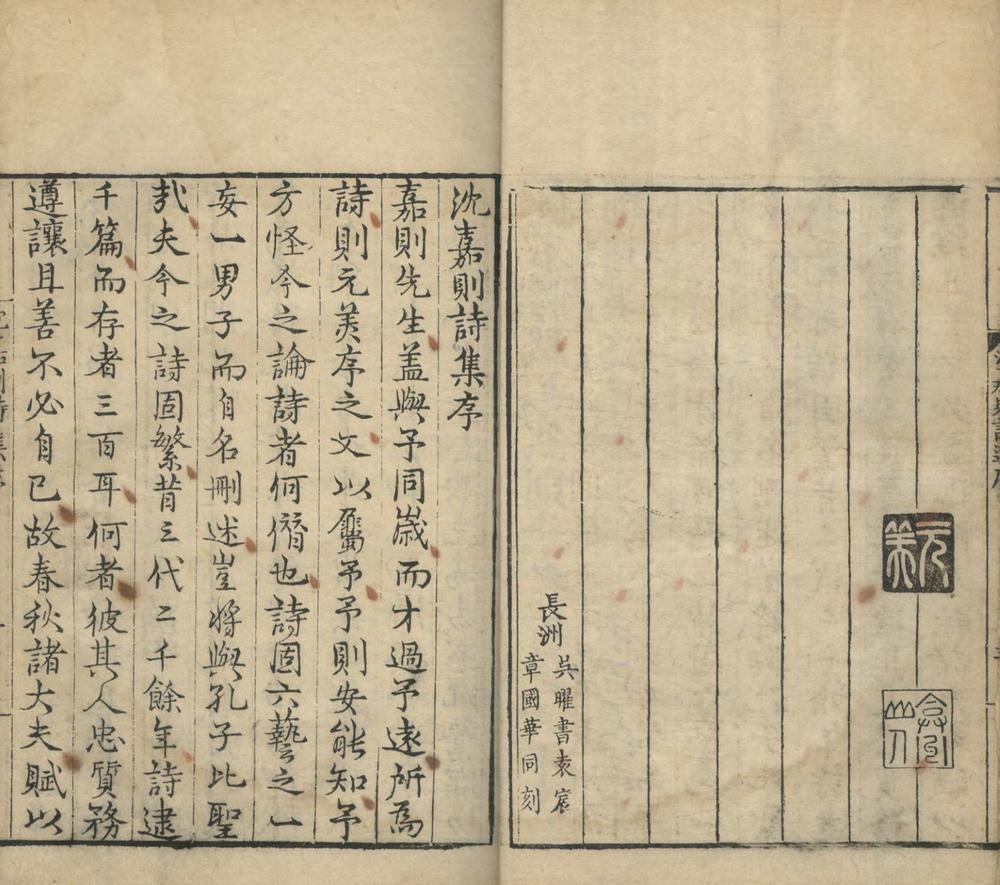 元美
長洲
吳曜書袁宸
章國華同刻
沈嘉則詩集序
嘉則先生蓋與予同歲而才過予遠所爲
詩則元美序之文以屬予予則安能知予
方怪今之論詩者何僭也詩固六藝之一
妄一男子而自名刪述豈將與孔子比聖
㢤夫今之詩固繁昔三代二千餘年詩逮
千篇而存者三百耳何者彼其人忠質務
遵讓且善不必自己故春秋諸大夫賦以